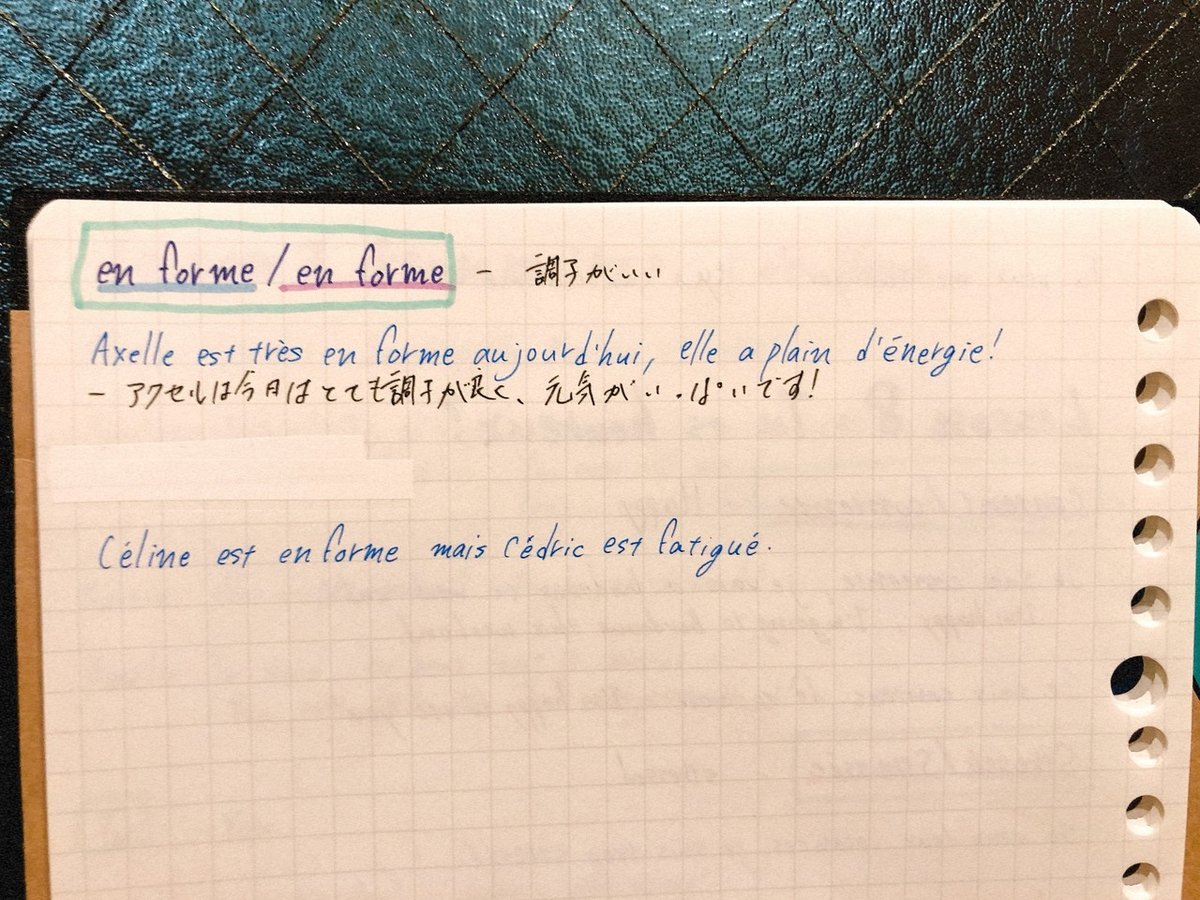 en forme / en forme - 調子がいい
Axelle est très en forme aujourd'hui, elle a plain d'énergie!
- アクセルは今日はとても調子が良く、元気がいっぱいです!
Céline est en forme mais Cédric est fatigué.